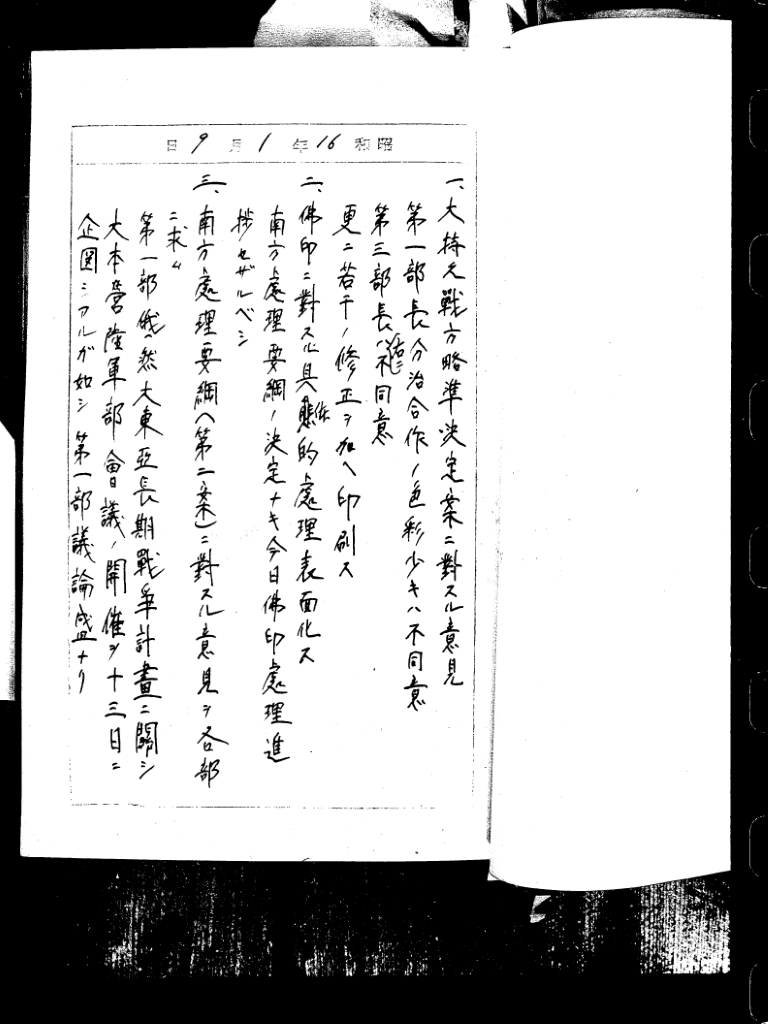 昭和16年1月9日
一、大持久戰方略準決定案ニ對スル意見
第一部長分治合作ノ色彩少キハ不同意
第三部長ハ不同意
更ニ若干ノ修正ヲ加ヘ印刷ス
二、佛印ニ對スル具体的處理表面化ス
南方處理要綱ノ決定ナキ今日佛印處理進
捗セザルベシ
三、南方處理要綱(第二案)ニ對スル意見ヲ各部
ニ求ム
第一部俄然大東亞長期戰爭計畫ニ關シ
大本營陸軍部會議ノ開催ヲ十三日ニ
企圖シアルガ如シ 第一部議論盛ナリ